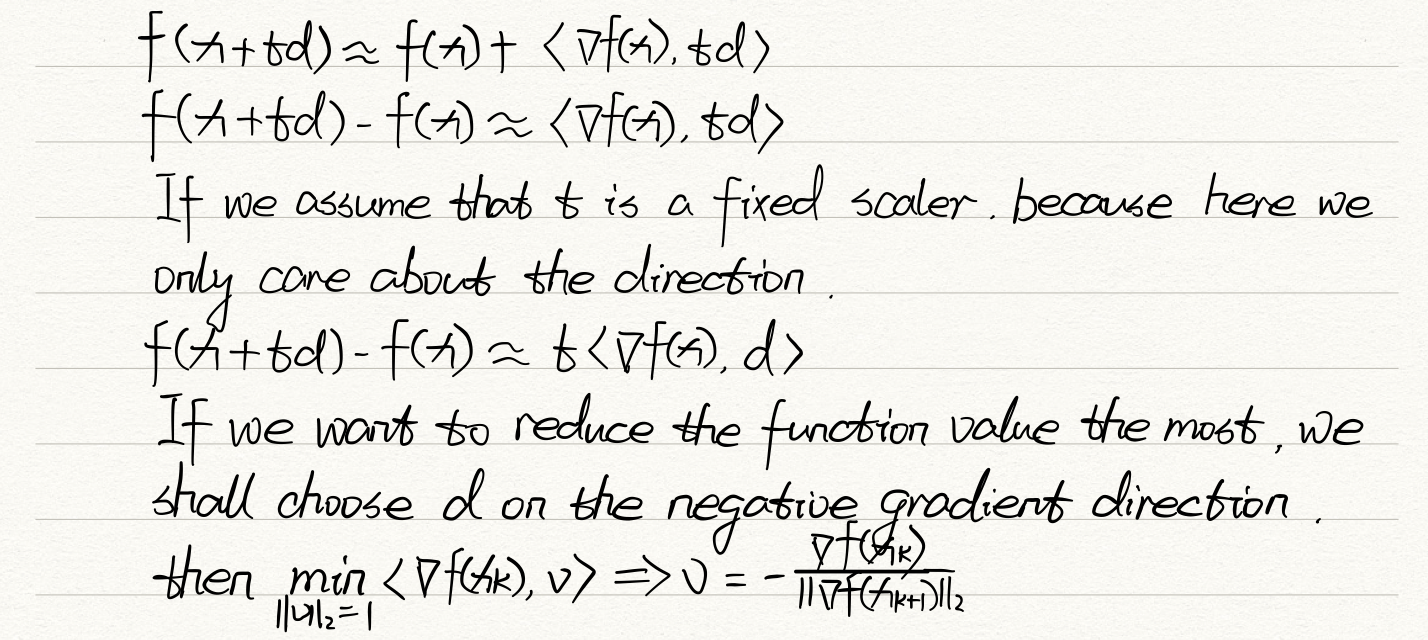 f(x+td) ≈ f(x) + ⟨∇f(x), td⟩
f(x+td) - f(x) ≈ ⟨∇f(x), td⟩
If we assume that t is a fixed scaler. because here we
only care about the direction.
f(x+td) - f(x) ≈ t⟨∇f(x), d⟩
If we want to reduce the function value the most, we
shall choose d on the negative gradient direction.
then min_{||v||₂=1} ⟨∇f(x_k), v⟩ ⇒ v = - ∇f(x_k) / ||∇f(x_{k+1})||₂